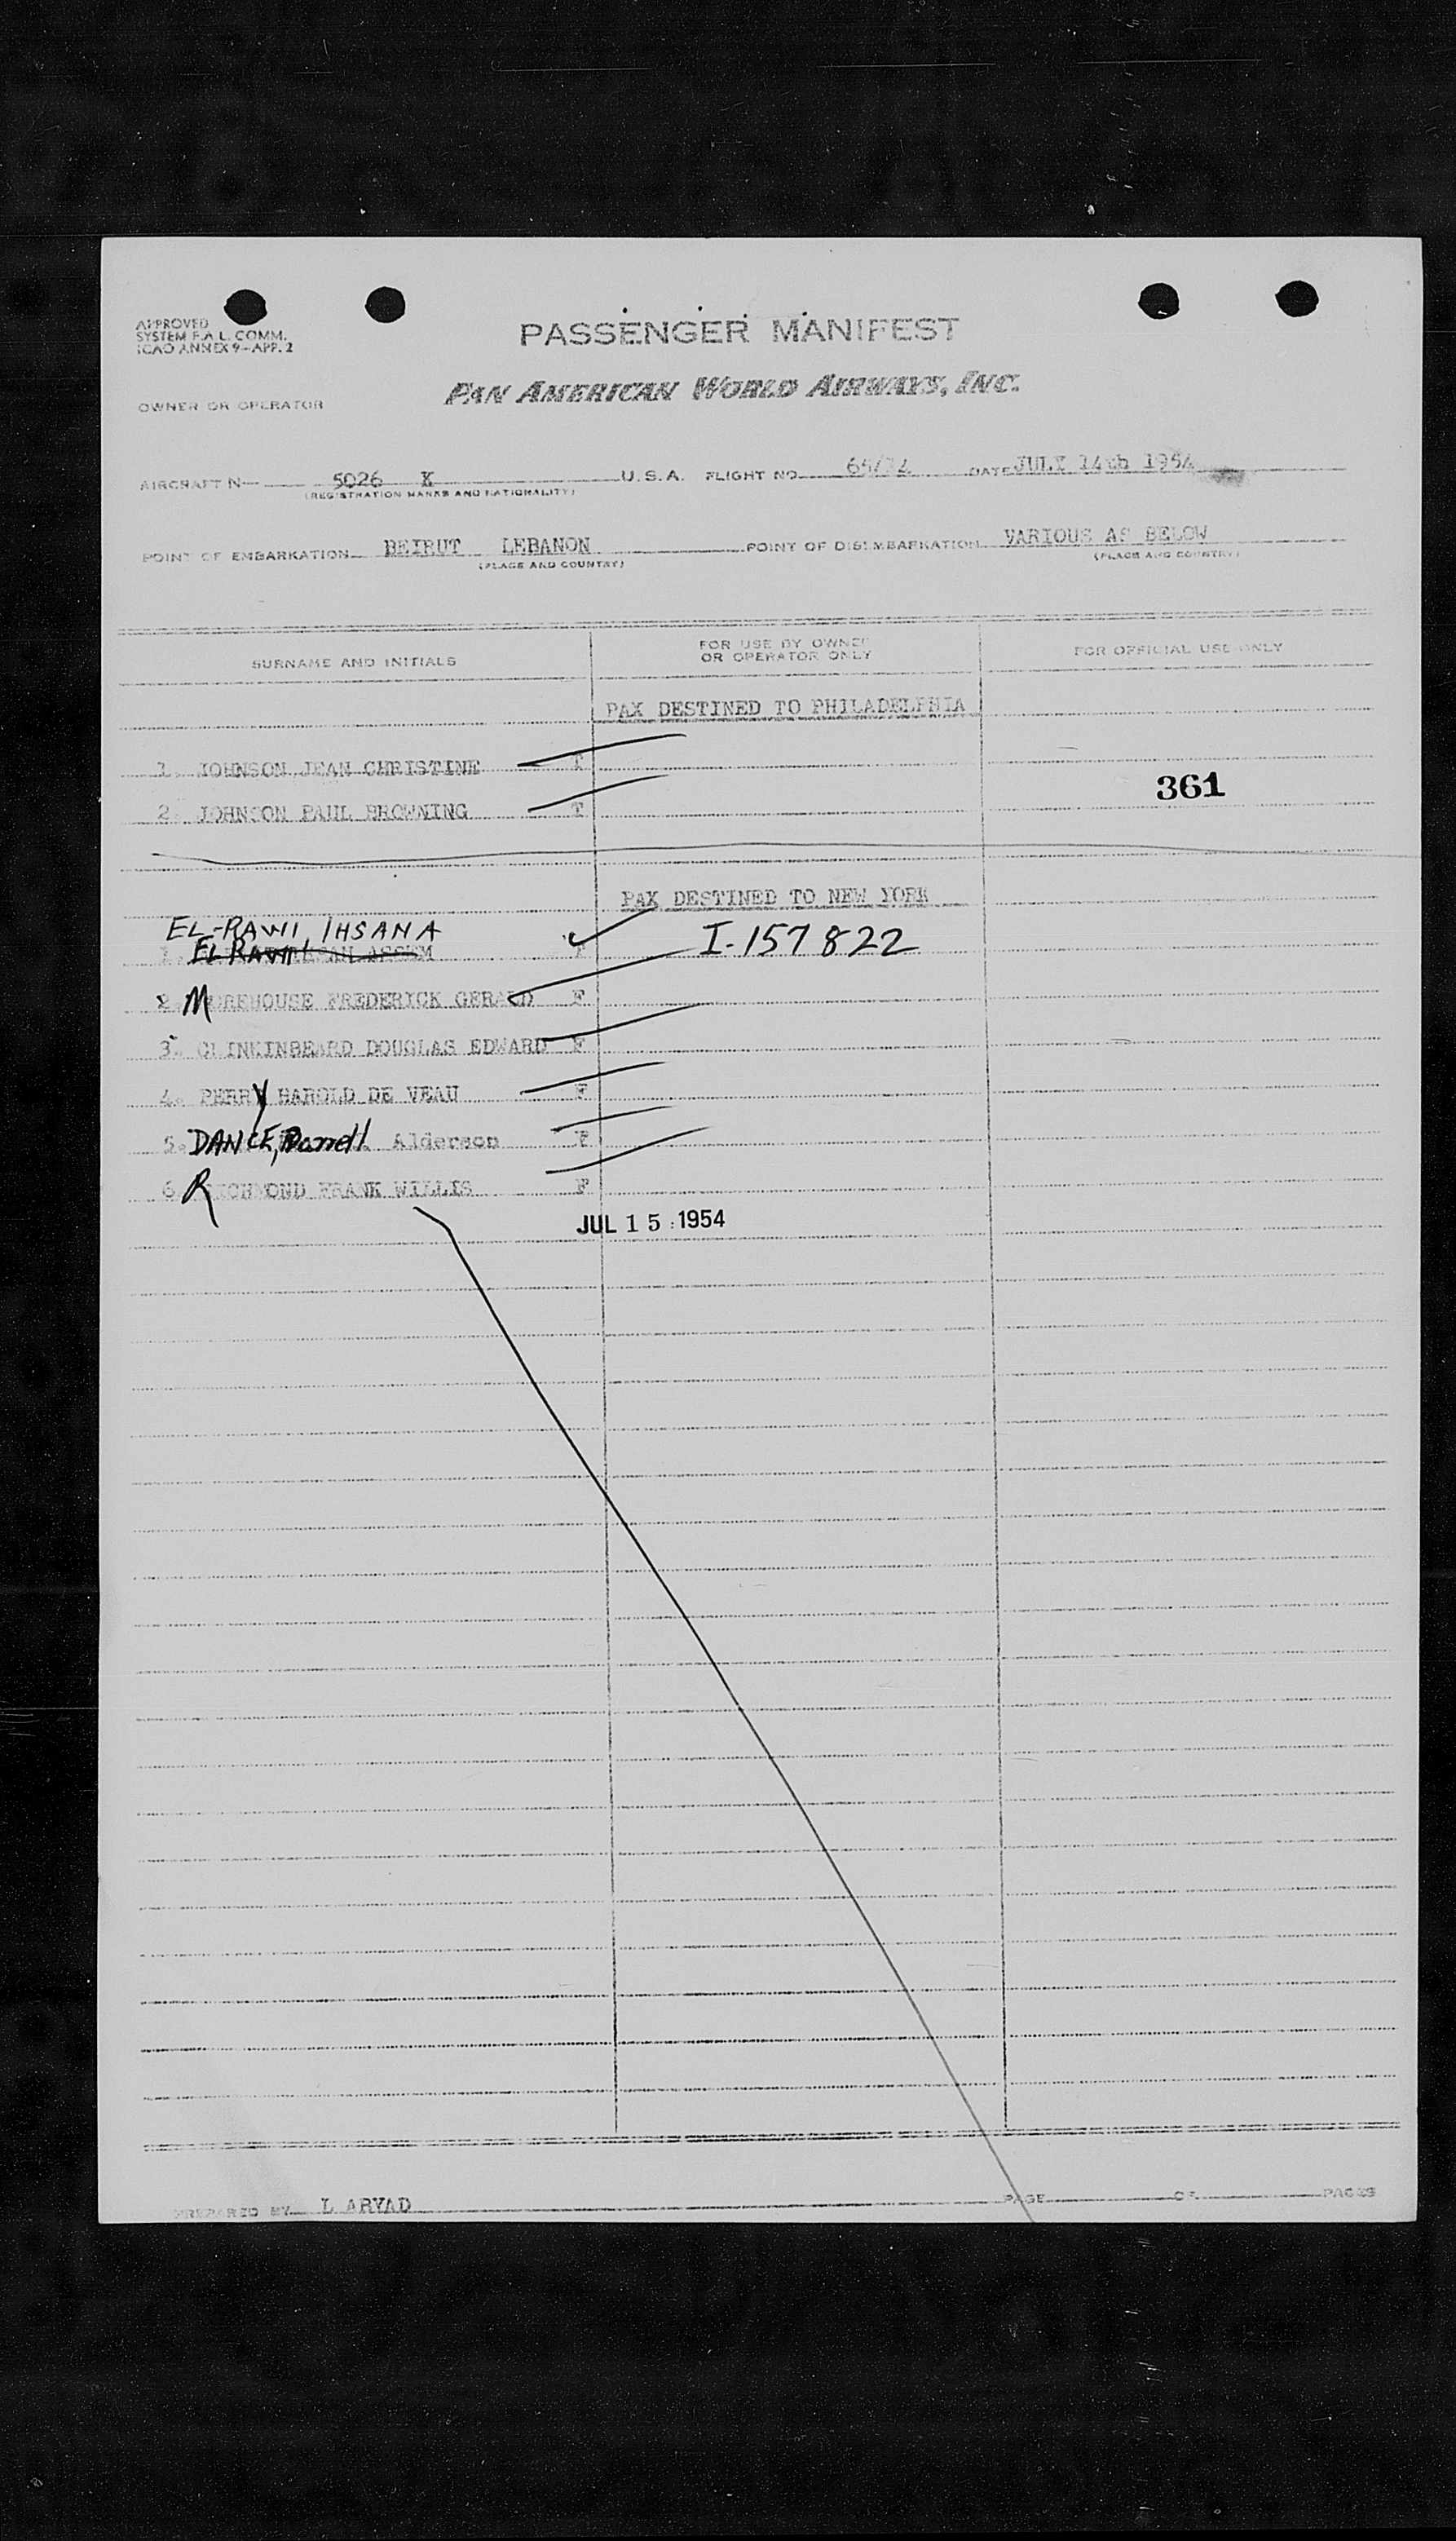 APPROVED
SYSTEM F.A.L. COMM.
ICAO ANNEX 9-APP. 2
PASSENGER MANIFEST
PAN AMERICAN WORLD AIRWAYS, INC.
OWNER OR OPERATOR
AIRCRAFT N— 5026 K U.S.A. FLIGHT NO. DATE JULY 14th 1954
(REGISTRATION MARKS AND NATIONALITY)
POINT OF EMBARKATION BEIRUT LEBANON POINT OF DISEMBARKATION VARIOUS AS BELOW
(PLACE AND COUNTRY) (PLACE AND COUNTRY)
SURNAME AND INITIALS
FOR USE BY OWNER
OR OPERATOR ONLY
FOR OFFICIAL USE ONLY
PAX DESTINED TO PHILADELPHIA
1. JOHNSON JEAN CHRISTINE T
361
2. JOHNSON PAUL BROWNING T
PAX DESTINED TO NEW YORK
EL-RAWI, IHSAN A
1. EL RAWI T I-157822
2. MOREHOUSE FREDERICK GERALD F
3. CLINKINBEARD DOUGLAS EDWARD F
4. PERRY HAROLD DE VEAU F
5. DANCE, Darrell Alderson F
6. RICHMOND FRANK WILLIS F
JUL 15 1954
PREPARED BY L ARYAD PAGE OF PAGES